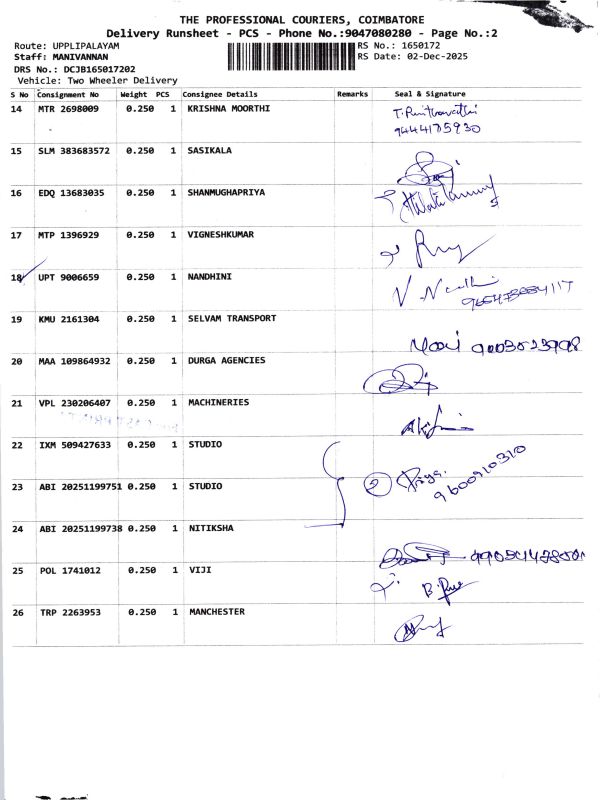 THE PROFESSIONAL COURIERS, COIMBATORE
Delivery Runsheet - PCS - Phone No.:9047080280 - Page No.:2
Route: UPPLIPALAYAM RS No.: 1650172
Staff: MANIVANNAN RS Date: 02-Dec-2025
DRS No.: DCJB165017202
Vehicle: Two Wheeler Delivery
S No Consignment No Weight PCS Consignee Details Remarks Seal & Signature
14 MTR 2698009 0.250 1 KRISHNA MOORTHI
9444175930
15 SLM 383683572 0.250 1 SASIKALA
16 EDQ 13683035 0.250 1 SHANMUGHAPRIYA
17 MTP 1396929 0.250 1 VIGNESHKUMAR
18 UPT 9006659 0.250 1 NANDHINI
19 KMU 2161304 0.250 1 SELVAM TRANSPORT
20 MAA 109864932 0.250 1 DURGA AGENCIES
21 VPL 230206407 0.250 1 MACHINERIES
22 IXM 509427633 0.250 1 STUDIO
23 ABI 20251199751 0.250 1 STUDIO
② Priya.
9600910310
24 ABI 20251199738 0.250 1 NITIKSHA
25 POL 1741012 0.250 1 VIJI
26 TRP 2263953 0.250 1 MANCHESTER